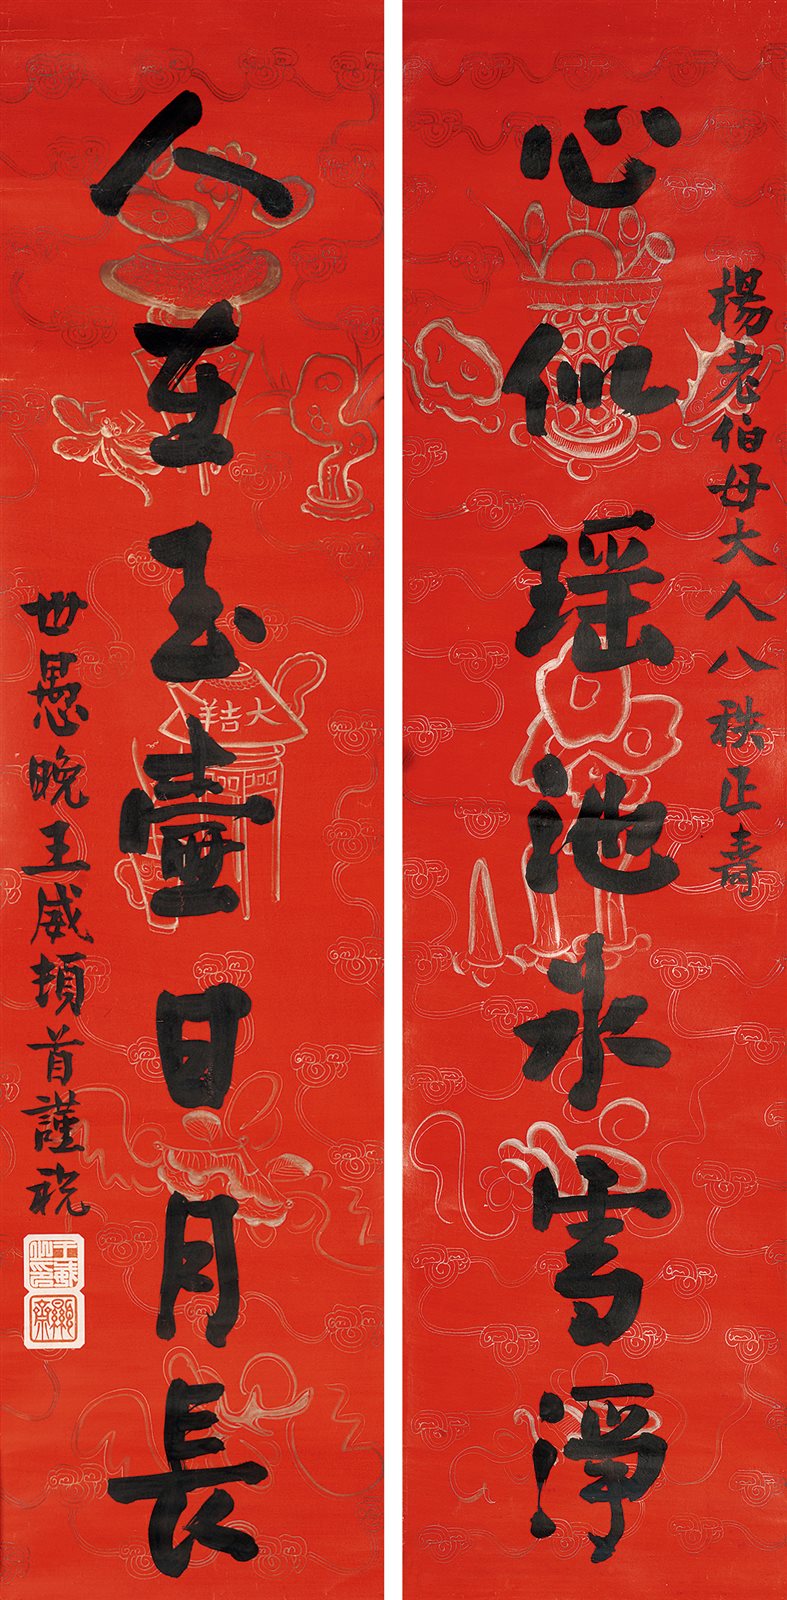 楊老伯母大人八秩正壽
心似瑶池水雪淨
人在玉壺日月長
世愚晚王威頓首謹祝
大吉羊